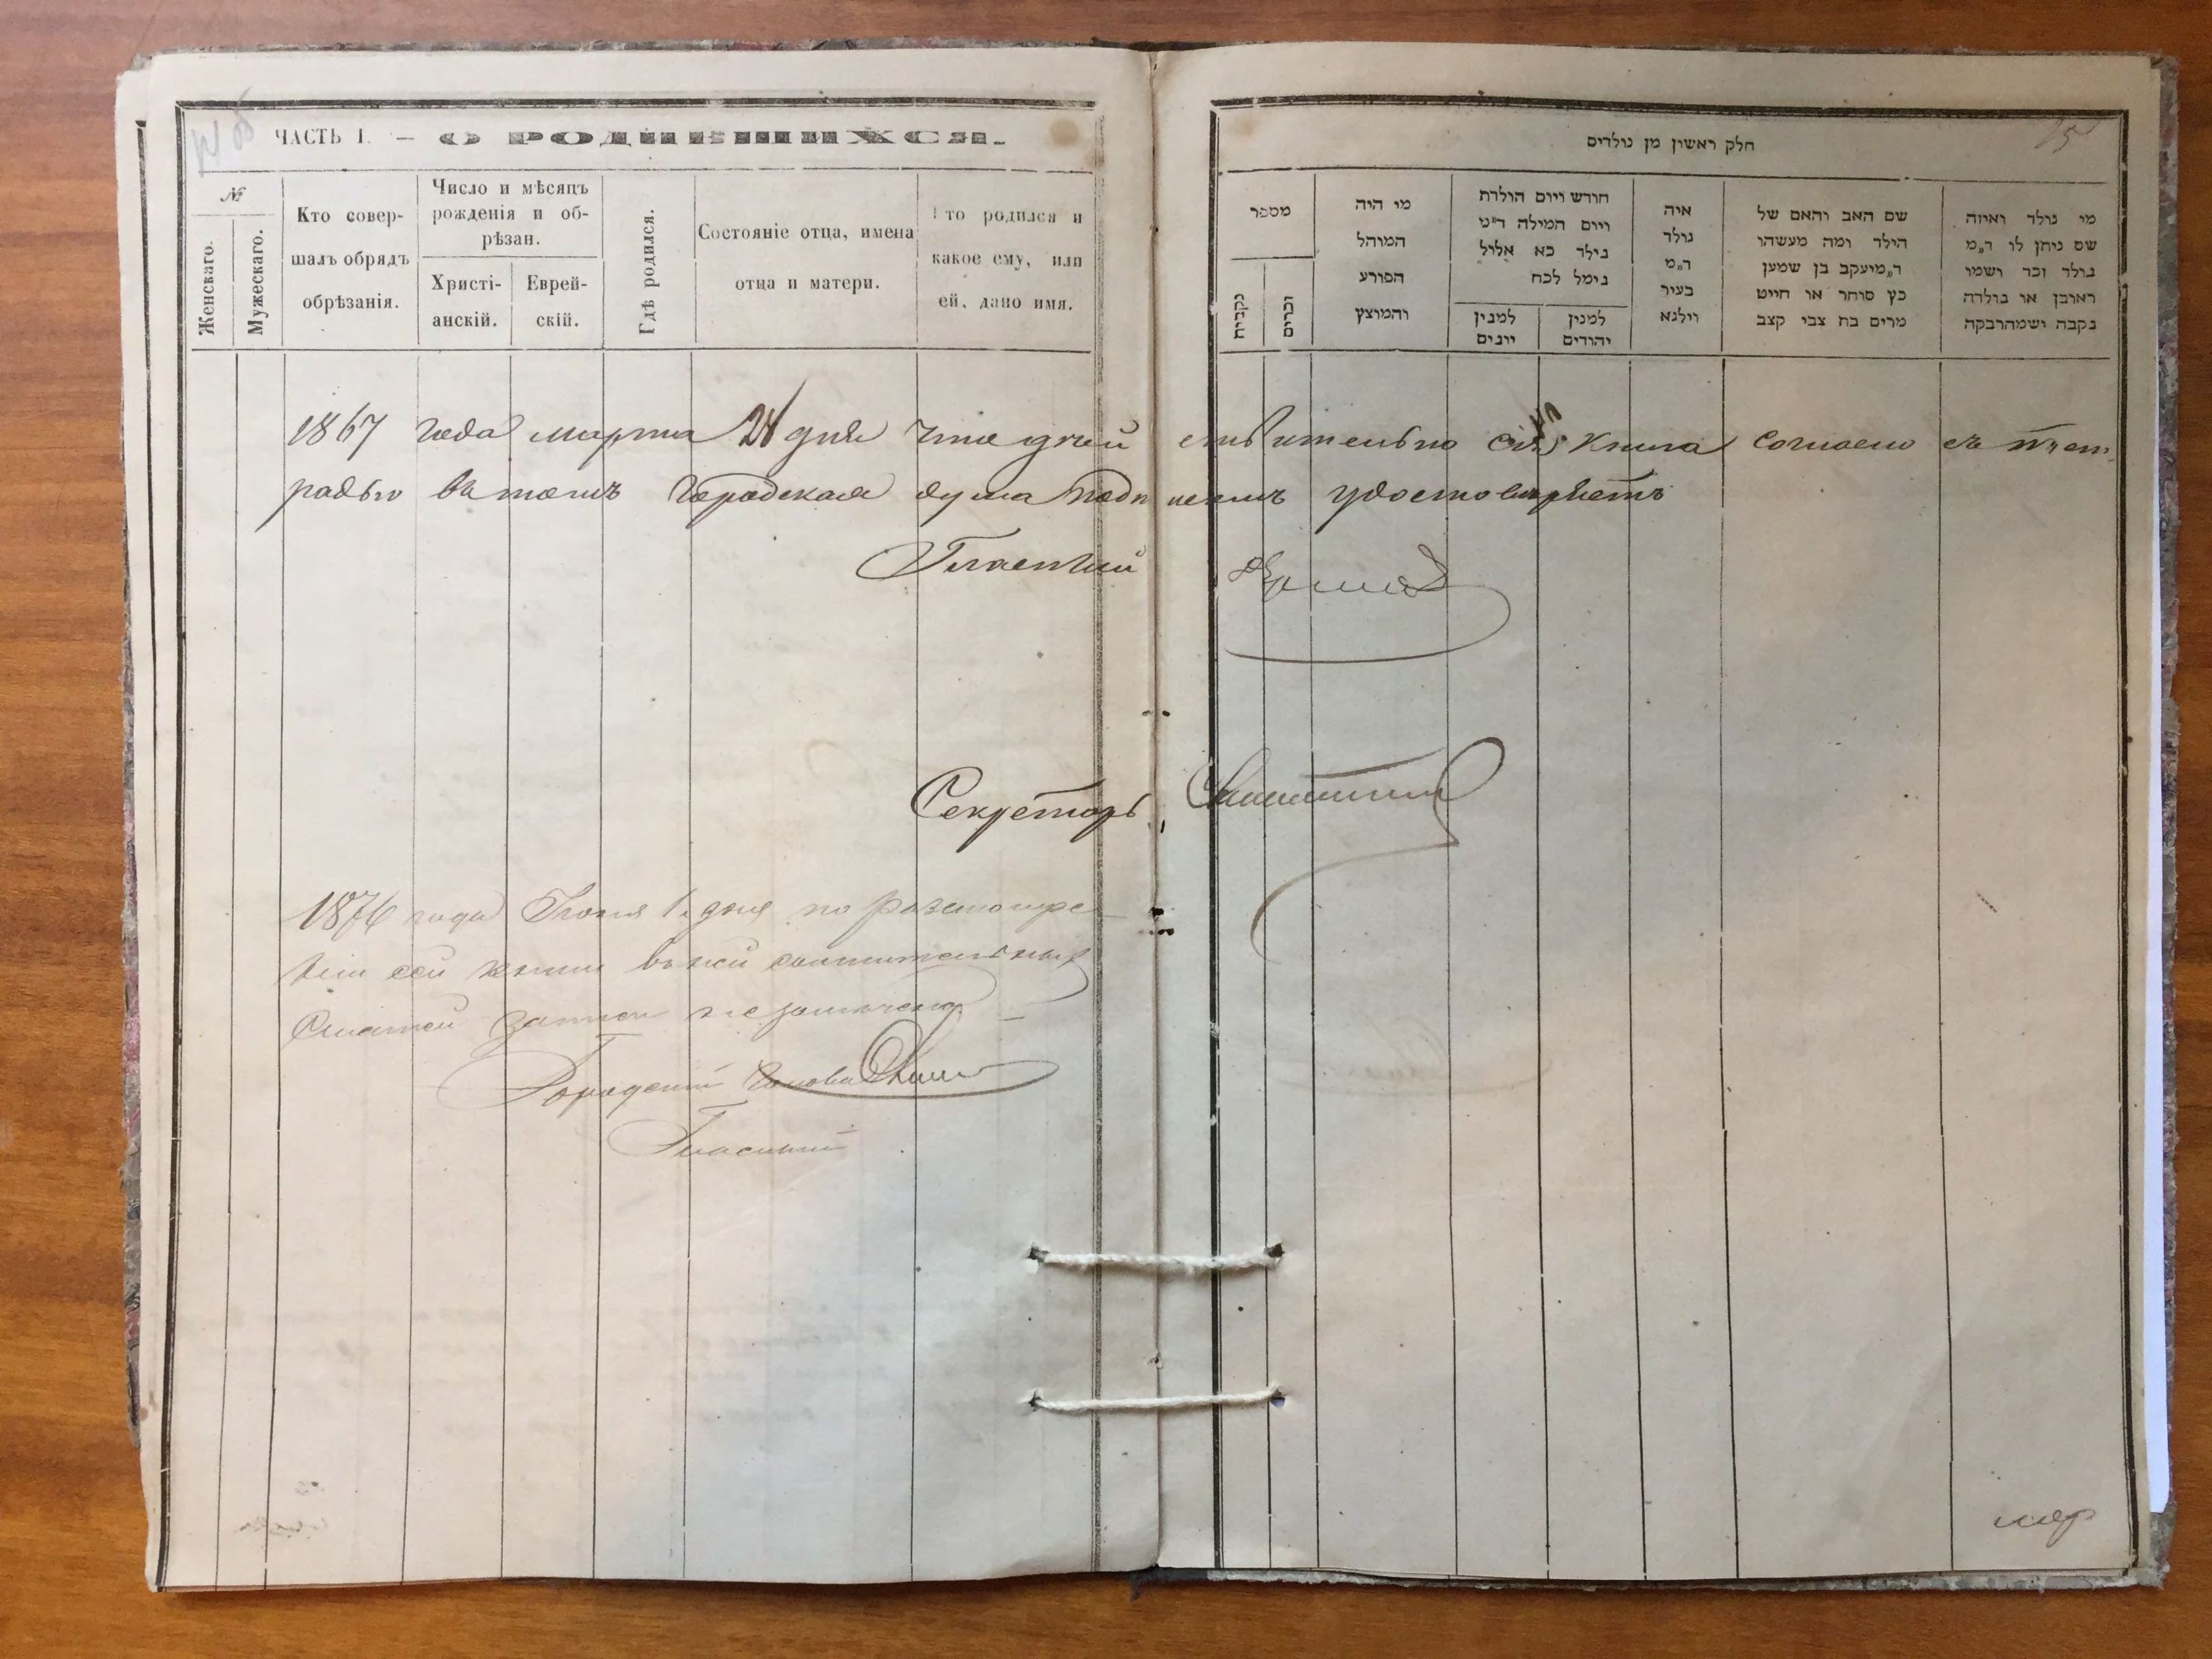 ЧАСТЬ I. — О РОДИВШИХСЯ.
№
Женскаго.
Мужескаго.
Кто совер-
шалъ обрядъ
обрѣзанія.
Число и мѣсяцъ
рожденія и об-
рѣзан.
Христі-
анскій.
Еврей-
скій.
Гдѣ родился.
Состояніе отца, имена
отца и матери.
то родился и
какое ему, или
ей, дано имя.
חלק ראשון מן נולדים
מספר
נקבות
זכרים
מי היה
המוהל
הפורע
והמוצץ
חורש ויום הולדת
ויום המילה ד״מ
נילד כא אלול
נימל לכח
למנין
יונים
למנין
יהודים
איה
נולד
ד״מ
בעיר
וילנא
שם האב והאם של
הילד ומה מעשהו
ד״מ יעקב בן שמען
כץ סוחר או חייט
מרים בת צבי קצב
מי נולד ואיזה
שם ניתן לו ד״מ
נולד זכר ושמו
ראובן או נולדה
נקבה ושמה רבקה
1867 года марта 28 дня что дѣйствительно сія книга согласно съ тет
радью въ томъ Городская дума подписемъ удостовѣряетъ
Гласный
Секретарь
1876 года Іюня 1 дня по разсмотре
ніи сей книги въ ней сомнительныхъ
Статей записи не замѣчено
Городской Голова
Гласный